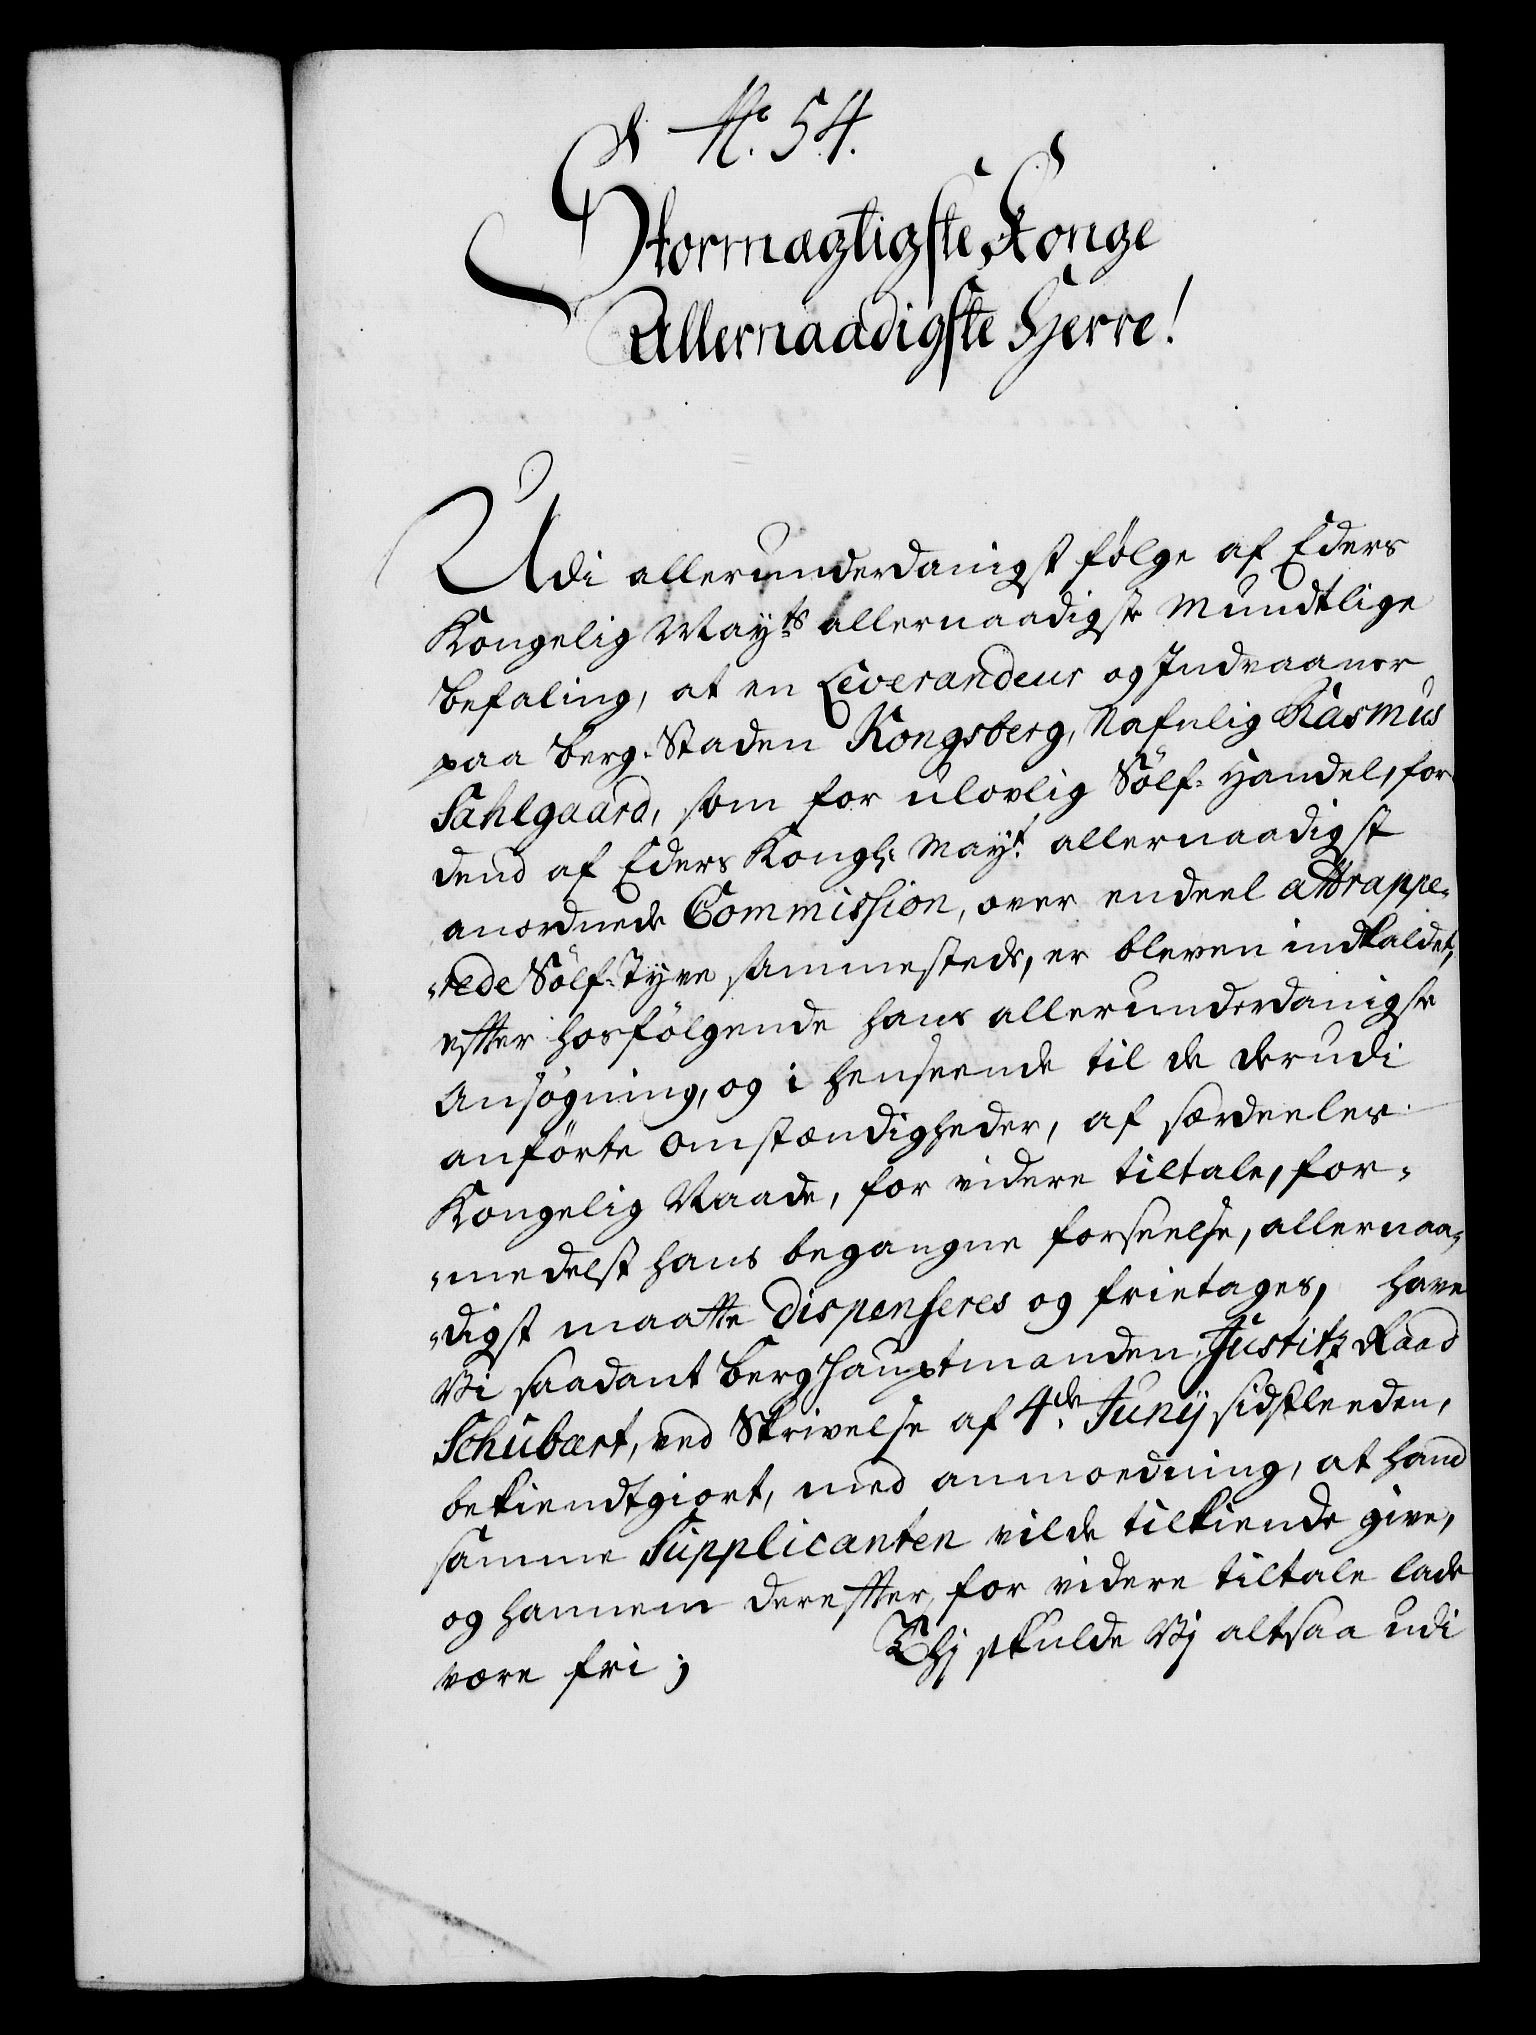 No. 54.
Stormægtigste Konge
Allernaadigste Herre!
Udi allerunderdanigst følge af Eders
Kongelig Mayts allernaadigste Mundtlige
befaling, at en Leverandeur og Indvaaner
paa Berg-Staden Kongsberg, Nafnlig Rasmus
Sahlgaard, som for ulovlig Sølf-Handel, for
dend af Eders Kongl: Mayt. allernaadigst
anordnede Commission, over endeel attrappe-
-rede Sølf-Tyve sammesteds, er bleven indkaldet,
effter hosfølgende hans allerunderdanigste
Ansøgning, og i henseende til de derudi
anførte Omstændigheder, af særdeeles
Kongelig Naade, for videre tiltale, for-
-medelst hans begangne forseelse, allernaa-
-digst maatte dispenseres og frietages, have
Vi saadant Berghauptmanden, Justitz Raad
Schubart, ved Skrivelse af 4de Junij sidstleeden,
bekiendtgiort, med anmoedning, at hand
samme Supplicanten vilde tilkiende give,
og hannem dereffter, for videre tiltale lade
være fri; Thj skulde Vj altsaa udi